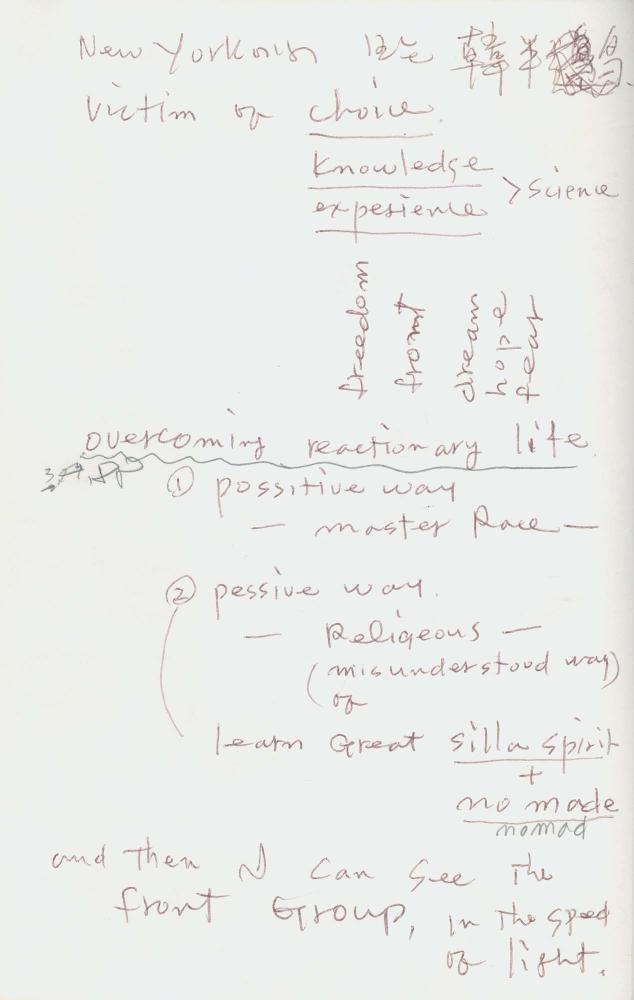 New York에서 보는 韓半島
victim of choice.
knowledge
experience > science
freedom
front
dream
hope
fear
overcoming reactionary life.
① possitive way
— master Race —
② pessive way.
— Religeous —
(misunderstood way)
of
learn Great silla spirit
+
no made
nomad
and then I can see the
front Group, in the speed
of light.